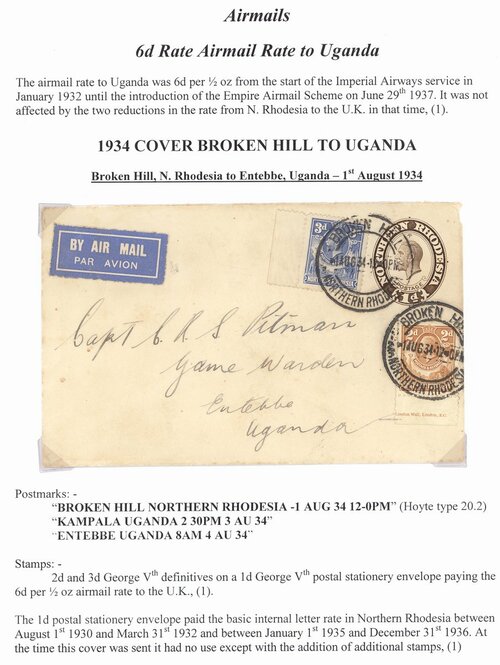 Airmails
6d Rate Airmail Rate to Uganda
The airmail rate to Uganda was 6d per ½ oz from the start of the Imperial Airways service in
January 1932 until the introduction of the Empire Airmail Scheme on June 29th 1937. It was not
affected by the two reductions in the rate from N. Rhodesia to the U.K. in that time, (1).
1934 COVER BROKEN HILL TO UGANDA
Broken Hill, N. Rhodesia to Entebbe, Uganda – 1st August 1934
BY AIR MAIL
PAR AVION
3d
BROKEN HILL
1 AUG 34-12-0PM
NORTHERN RHODESIA
NORTHERN RHODESIA
POSTAGE
BROKEN HILL
-1 AUG 34-12-0PM
NORTHERN RHODESIA
2d
London Wall, London, E.C.
Capt C R S Pitman
Game Warden
Entebbe
Uganda
Postmarks: -
"BROKEN HILL NORTHERN RHODESIA -1 AUG 34 12-0PM" (Hoyte type 20.2)
"KAMPALA UGANDA 2 30PM 3 AU 34"
"ENTEBBE UGANDA 8AM 4 AU 34"
Stamps: -
2d and 3d George Vth definitives on a 1d George Vth postal stationery envelope paying the
6d per ½ oz airmail rate to the U.K., (1).
The 1d postal stationery envelope paid the basic internal letter rate in Northern Rhodesia between
August 1st 1930 and March 31st 1932 and between January 1st 1935 and December 31st 1936. At
the time this cover was sent it had no use except with the addition of additional stamps, (1)